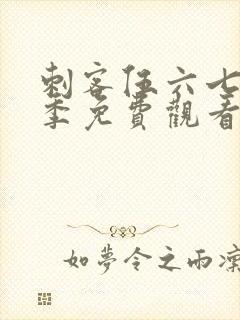 刺客伍六七
季免費觀看
如夢令之雨濛